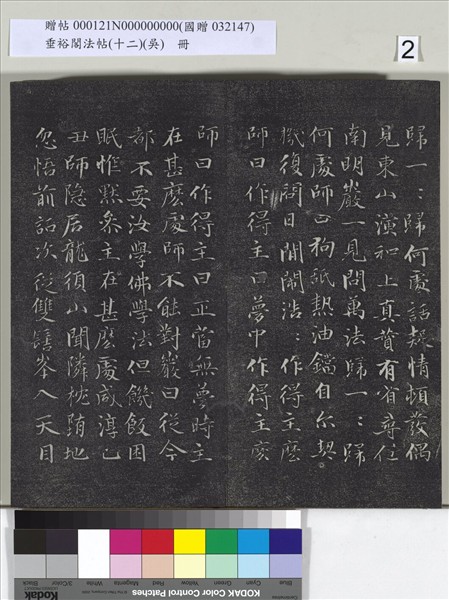 贈帖 000121N000000000(國贈 032147)
垂裕閣法帖(十二)(吳) 冊
2
歸一：歸何處話疑情頓發偶
見東山演和上真贊有省尋住
南明巖一見問萬法歸一：歸
何處師曰狗舐熱油鐺自尔契
機復問日間鬧浩：作得主麼
師曰作得主曰夢中作得主麼
師曰作得主曰正當無夢時主
在甚麼處師不能對巖曰從今
都不要汝學佛學法但饑飯困
眠惟默參主在甚麼處咸淳乙
丑師隐居龍須山聞隣枕墮地
忽悟前話次從雙髻峯入天目
Black
3/Color
White
Magenta
Red
Yellow
Green
Cyan
Blue
KODAK Color Control Patches